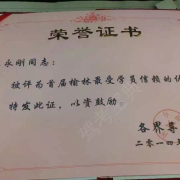 荣誉证书
永刚同志：
被评为首届榆林最受学员信赖的优
特发此证，以资鼓励
各界尊
二〇一四年